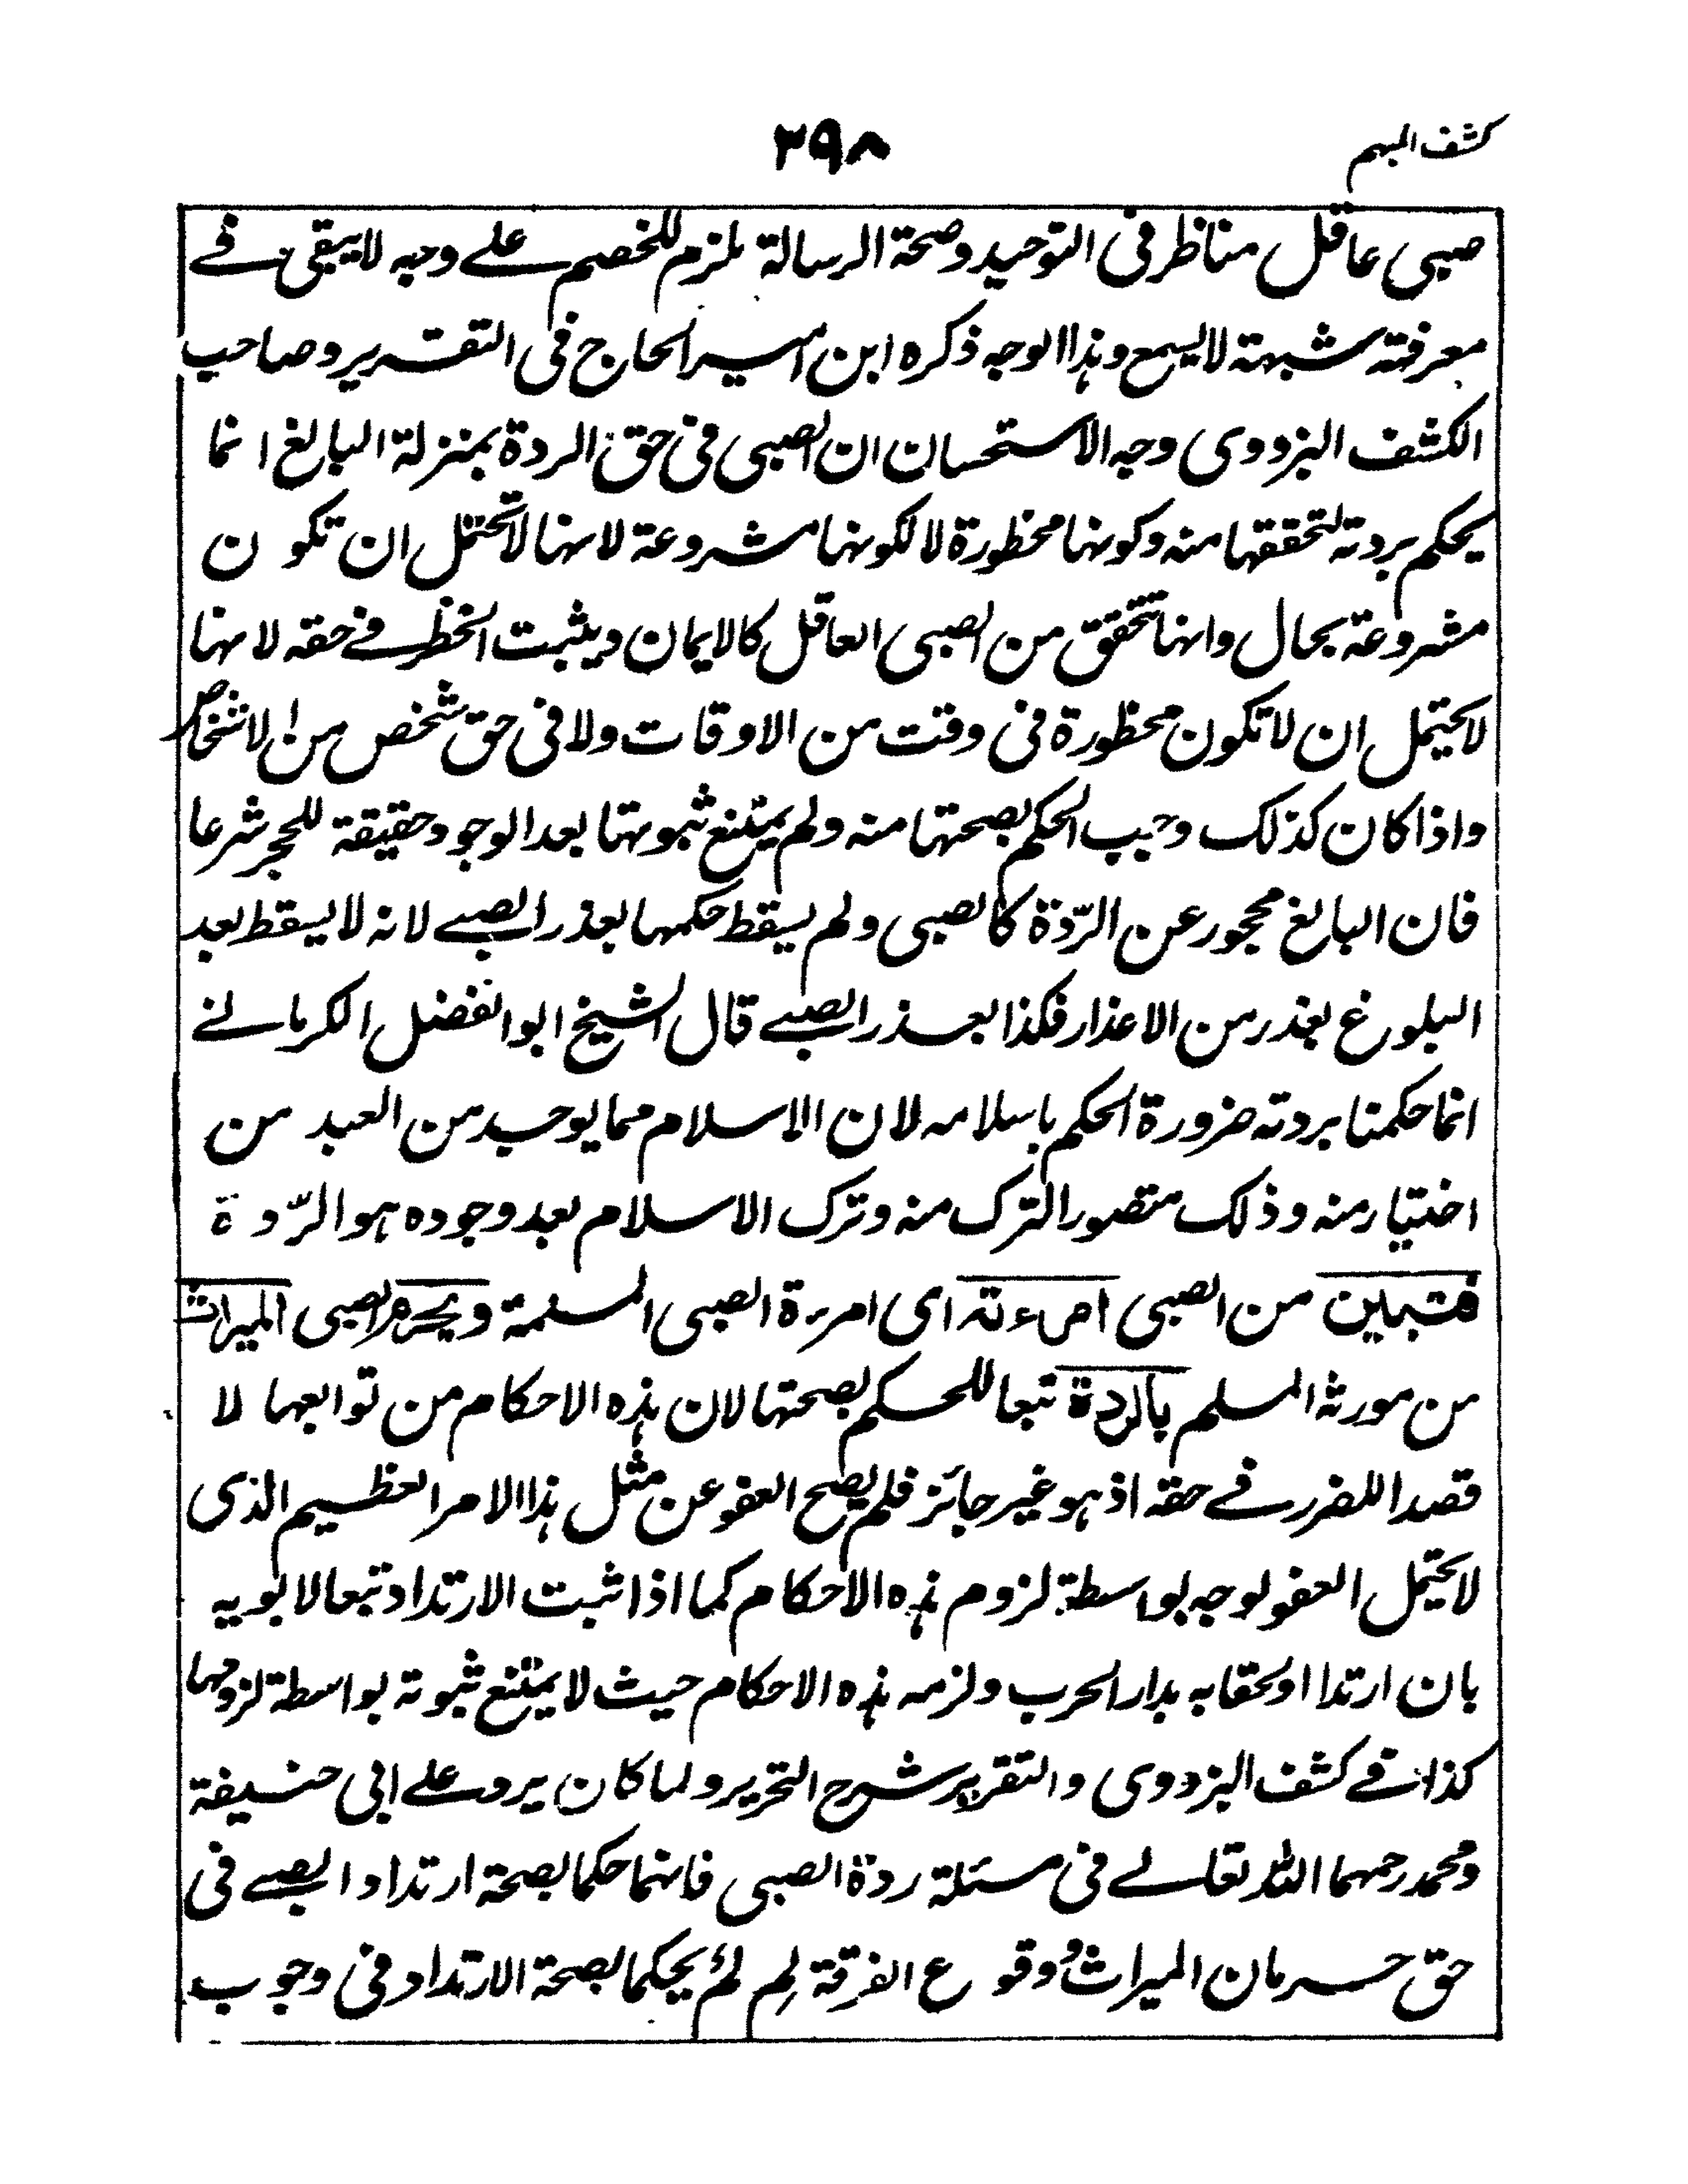 كشف المبهم
٢٩٨
صبى عاقل مناظر فى التوحيد وصحة الرسالة ملزم للخصم على وجه لا يبقى فى
معرفته شبهة لا يسمع وهذا الوجه ذكره ابن امير الحاج فى التقرير وصاحب
الكشف البزدوى وجه الاستحسان ان الصبى فى حق الردة بمنزلة البالغ انما
يحكم بردته لتحققها منه وكونها محظورة لا لكونها مشروعة لانها لا تحتمل ان تكون
مشروعة بحال وانها تتحقق من الصبى العاقل كالايمان ويثبت الحظر فى حقه لانها
لا يحتمل ان لا تكون محظورة فى وقت من الاوقات ولا فى حق شخص من الاشخاص
واذا كان كذلك وجب الحكم بصحتها منه ولم يمتنع ثبوتها بعد الوجود حقيقة للحجر شرعا
فان البالغ محجور عن الرّدة كالصبى ولم يسقط حكمها بعذر الصبى لانه لا يسقط بعد
البلوغ بعذر من الاعذار فكذا بعذر الصبى قال الشيخ ابو الفضل الكرمانى
انما حكمنا بردته ضرورة الحكم باسلامه لان الاسلام مما يوجد من العبد من
اختيار منه وذلك متصور الترك منه وترك الاسلام بعد وجوده هو الرّدة
فتبين من الصبى امرءته اى امرءة الصبى المسلمة ويحرم الصبى الميراث
من مورثه المسلم بالردة تبعا للحكم بصحتها لان هذه الاحكام من توابعها لا
قصدا للضرر فى حقه اذ هو غير جائز فلم يصح العفو عن مثل هذا الامر العظيم الذى
لا يحتمل العفو لوجه بواسطة لزوم هذه الاحكام كما اذا ثبت الارتداد تبعا لابويه
بان ارتدا او لحقا به بدار الحرب ولزمه هذه الاحكام حيث لا يمتنع ثبوته بواسطة لزومها
كذا فى كشف البزدوى والتقرير شرح التحرير ولما كان يرد على ابى حنيفة
ومحمد رحمهما الله تعالى فى مسئلة ردة الصبى فانهما حكما بصحة ارتداد الصبى فى
حق حرمان الميراث ووقوع الفرقة لِم لم يحكما بصحة الارتداد فى وجوب